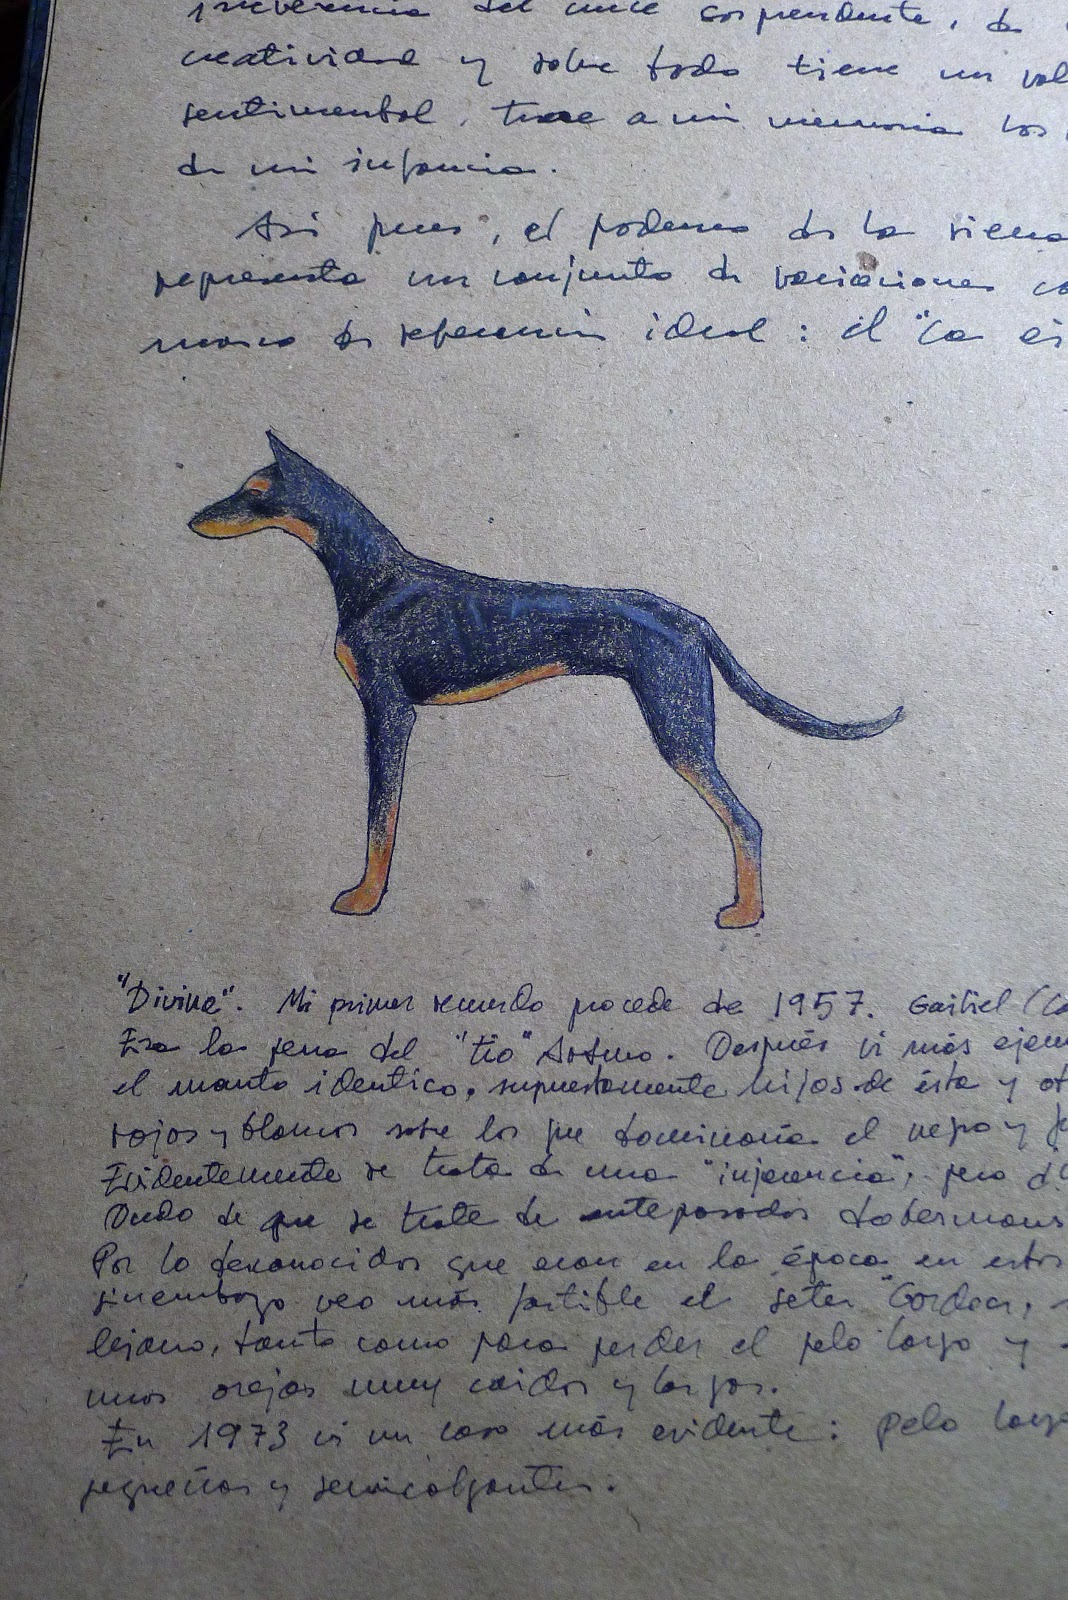 del cruce sorprendente, de
creatividad y sobre todo tiene un
sentimental, trae a mi memoria los
de mi infancia.
Así pues, el podenco de la sierra
representa un conjunto de variaciones
marco de referencia ideal: el "ca
"Divina". Mi primer recuerdo procede de 1957. Gaibiel
Era la perra del "tío" Arturo. Después vi más
el manto identico, supuestamente hijos de ésta y
rojos y blancos sobre los que dominaría el negro y
Evidentemente se trata de una "injerencia", pero
Dudo de que se trate de antepasados dobermans
Por lo desconocidos que eran en la época en estos
sinembargo veo más factible el seter "Gordon,
lejano, tanto como para perder el pelo largo y
unas orejas muy caidas y largas.
En 1973 vi un caso más evidente: pelo
pequeñas y semicolgantes.